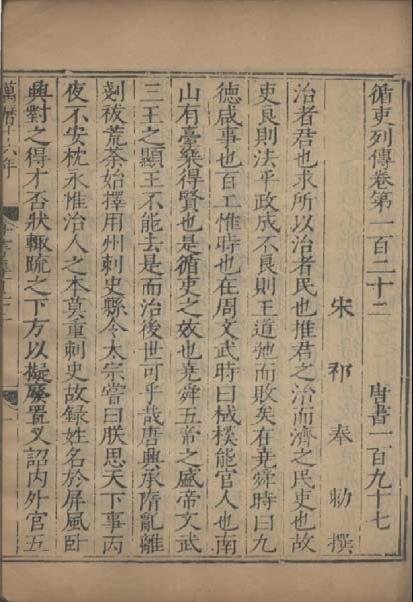 循吏列傳卷第一百二十二　唐書一百九十七
宋祁奉勑撰
治者君也求所以治者民也推君之治而濟之民吏也故
吏良則法平政成不良則王道弛而敗矣在堯舜時曰九
德咸事也百工惟時也在周文武時曰棫樸能官人也南
山有臺樂得賢也是循吏之效也堯舜五帝之盛帝文武
三王之顯王不能去是而治後世可乎哉唐興承隋亂離
剗祓荒荼始擇用州刺史縣令太宗嘗曰朕思天下事丙
夜不安枕永惟治人之本莫重刺史故録姓名於屏風臥
興對之得才否狀輒疏之下方以擬廢置又詔内外官五
萬曆十六年